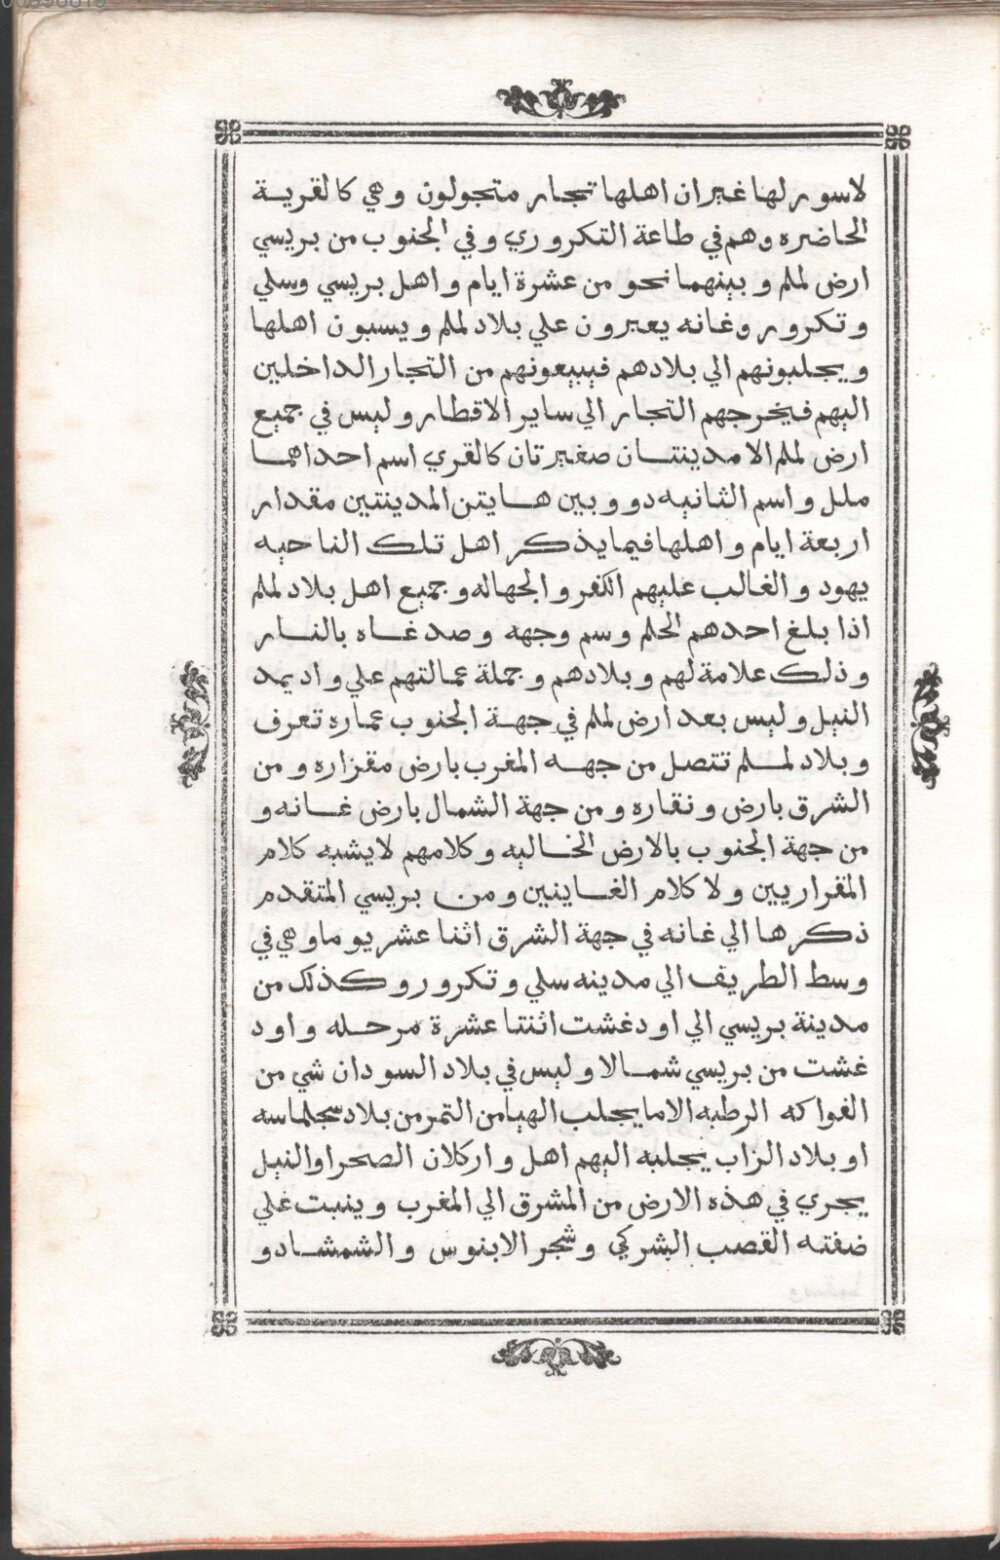 لاسور لها غير ان اهلها تجار متجولون وهي كالقرية
الحاضره وهم في طاعة التكروري وفي الجنوب من بريسي
ارض لملم وبينهما نحو من عشرة ايام واهل بريسي وسلي
وتكرور وغانه يعبرون علي بلاد لملم ويسبون اهلها
ويجلبونهم الي بلادهم فيبيعونهم من التجار الداخلين
اليهم فيخرجهم التجار الي ساير الاقطار وليس في جميع
ارض لملم الا مدينتان صغيرتان كالقري اسم احداهما
ملل واسم الثانيه دو وبين هايتن المدينتين مقدار
اربعة ايام واهلها فيما يذكر اهل تلك الناحيه
يهود والغالب عليهم الكفر والجهاله وجميع اهل بلاد لملم
اذا بلغ احدهم الحلم وسم وجهه وصدغاه بالنار
وذلك علامة لهم وبلادهم وجملة عمالتهم علي واد يمد
النيل وليس بعد ارض لملم في جهة الجنوب عماره تعرف
وبلاد لملم تتصل من جهه المغرب بارض مقزاره ومن
الشرق بارض ونقاره ومن جهة الشمال بارض غانه و
من جهة الجنوب بالارض الخاليه وكلامهم لا يشبه كلام
المقراريين ولا كلام الغاينين ومن بريسي المتقدم
ذكرها الي غانه في جهة الشرق اثنا عشر يوما وهي في
وسط الطريق الي مدينه سلي وتكرور وكذلك من
مدينة بريسي الي اودغشت اثنتا عشرة مرحله واود
غشت من بريسي شمالا وليس في بلاد السودان شي من
الفواكه الرطبه الا ما يجلب الهيا من التمر من بلاد سجلماسه
او بلاد الزاب يجلبه اليهم اهل واركلان الصحرا والنيل
يجري في هذه الارض من المشرق الي المغرب وينبت علي
ضفته القصب الشركي وشجر الابنوس والشمشاد و